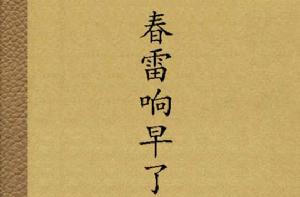 春雷响早了